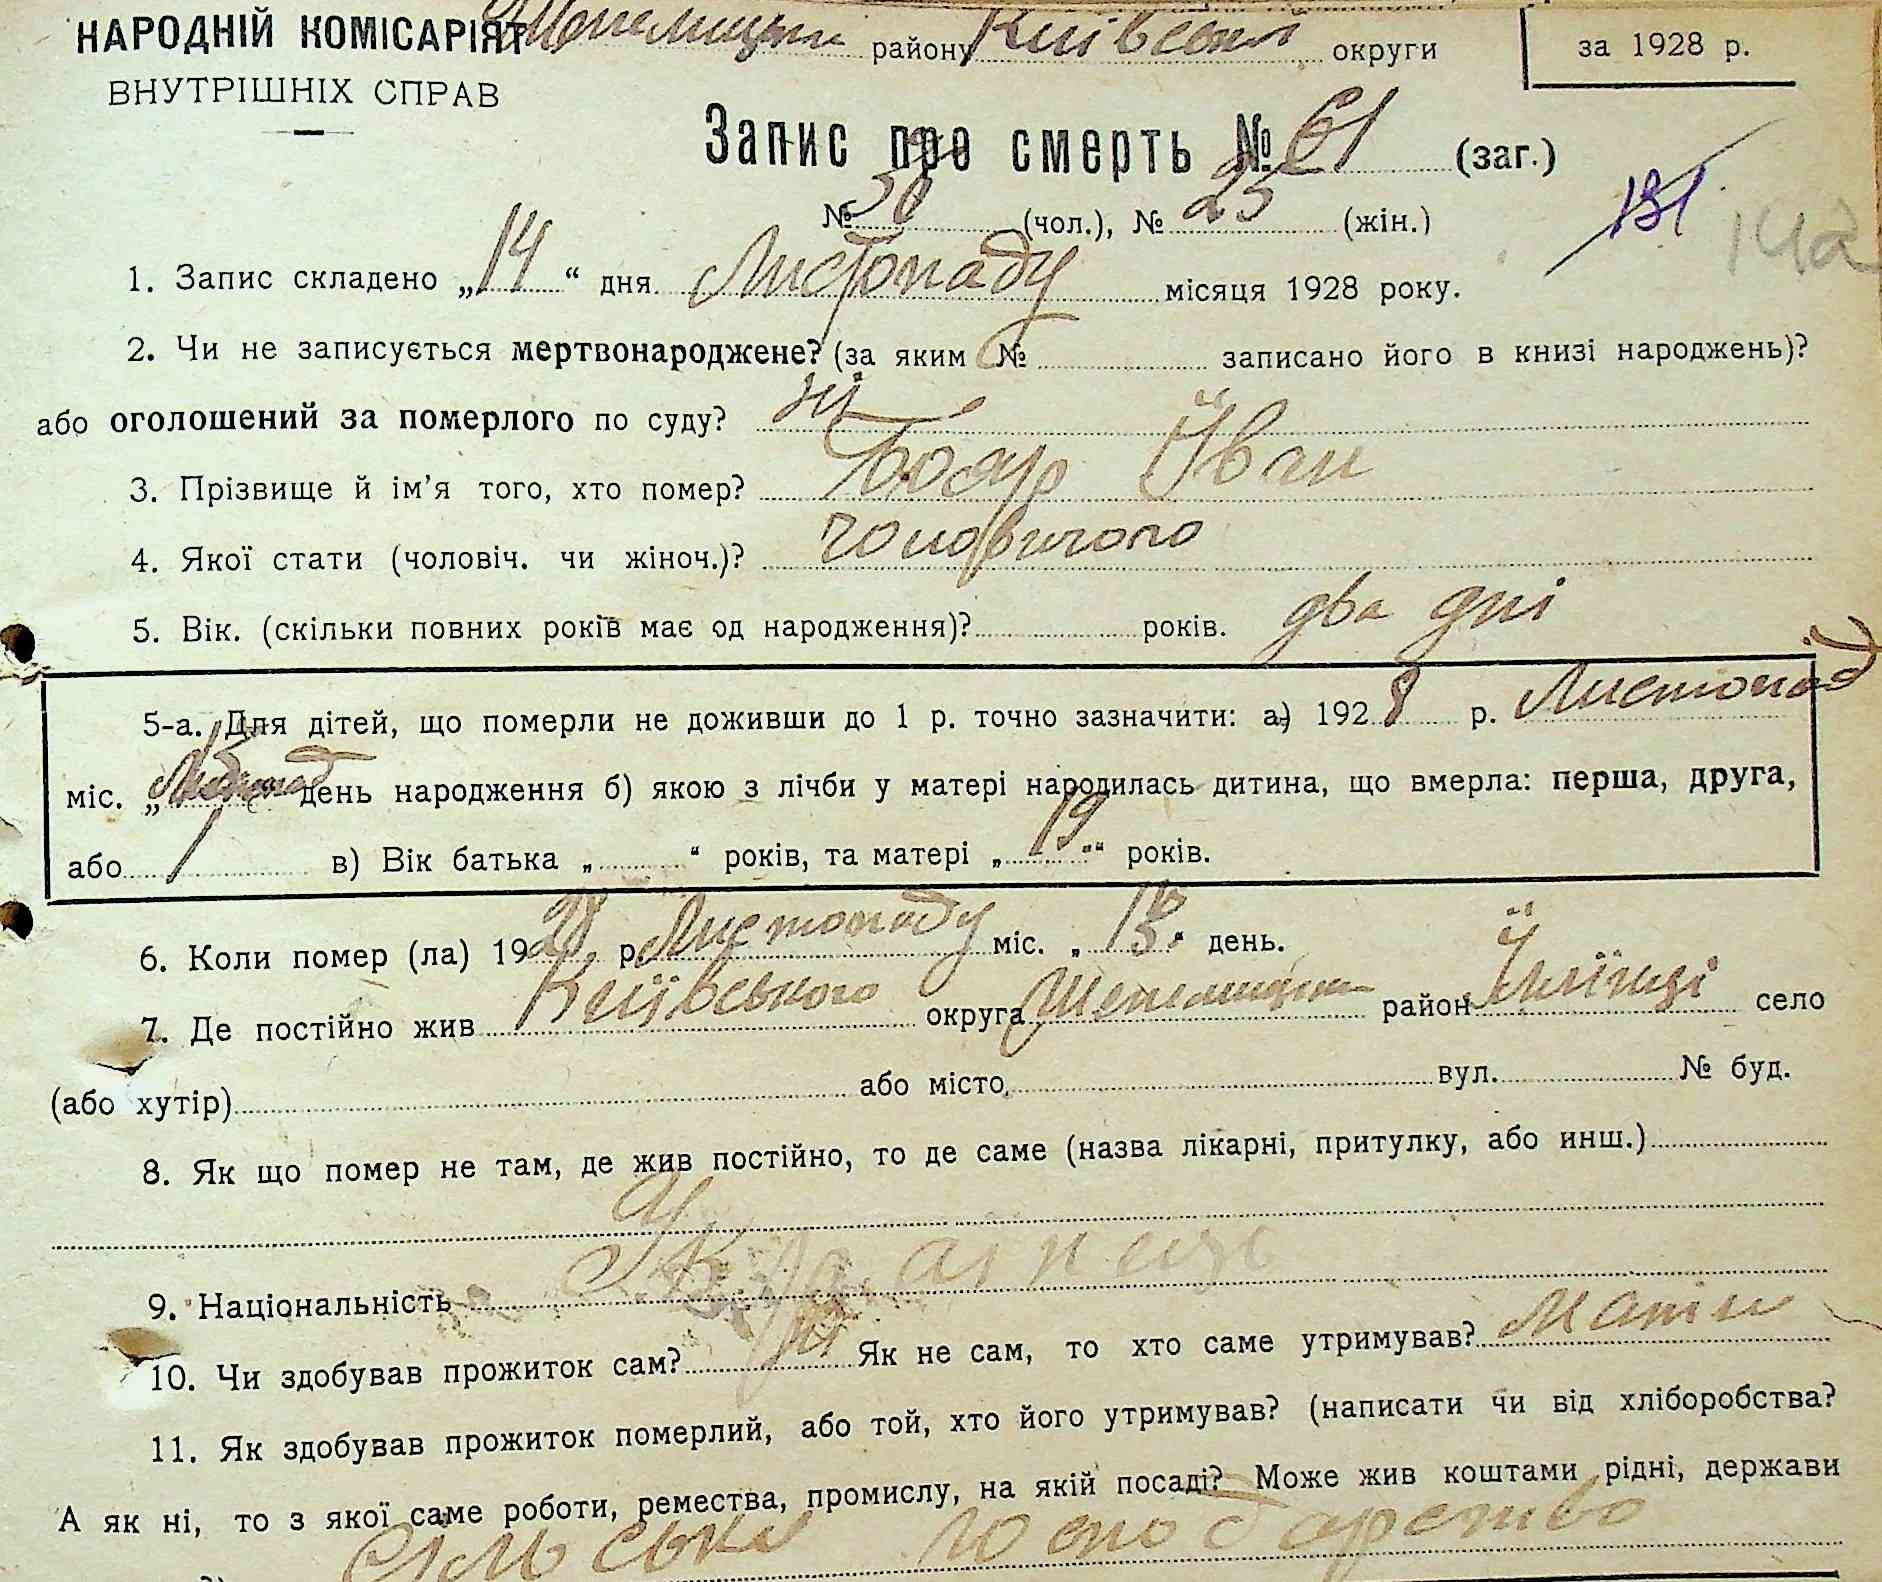 НАРОДНІЙ КОМІСАРІЯТ Шепелицьки району Київської округи за 1928 р.
ВНУТРІШНІХ СПРАВ
Запис про смерть № 61 (заг.)
131 142
№ 36 (чол.), № 25 (жін.)
1. Запис складено „14“ дня Листопаду місяця 1928 року.
2. Чи не записується мертвонароджене? (за яким № записано його в книзі народжень)?
або оголошений за померлого по суду? ні
3. Прізвище й ім'я того, хто помер? Бояр Їван
4. Якої стати (чоловіч. чи жіноч.)? чоловичого
5. Вік. (скільки повних років має од народження)? років. два дні
5-а. Для дітей, що померли не доживши до 1 р. точно зазначити: а) 1928 р. Листопад
міс. „ день народження б) якою з лічби у матері народилась дитина, що вмерла: перша, друга,
або 1 в) Вік батька „ “ років, та матері „19“ років.
6. Коли помер (ла) 1928 р. Листопаду міс. „ “ день.
7. Де постійно жив Київського округа район Їлїнці село
(або хутір) або місто вул. № буд.
8. Як що помер не там, де жив постійно, то де саме (назва лікарні, притулку, або инш.)
9. Національність Украінець
10. Чи здобував прожиток сам? ні Як не сам, то хто саме утримував? Матіи
11. Як здобував прожиток померлий, або той, хто його утримував? (написати чи від хліборобства?
А як ні, то з якої саме роботи, ремества, промислу, на якій посаді? Може жив коштами рідні, держави
Сільське господарство